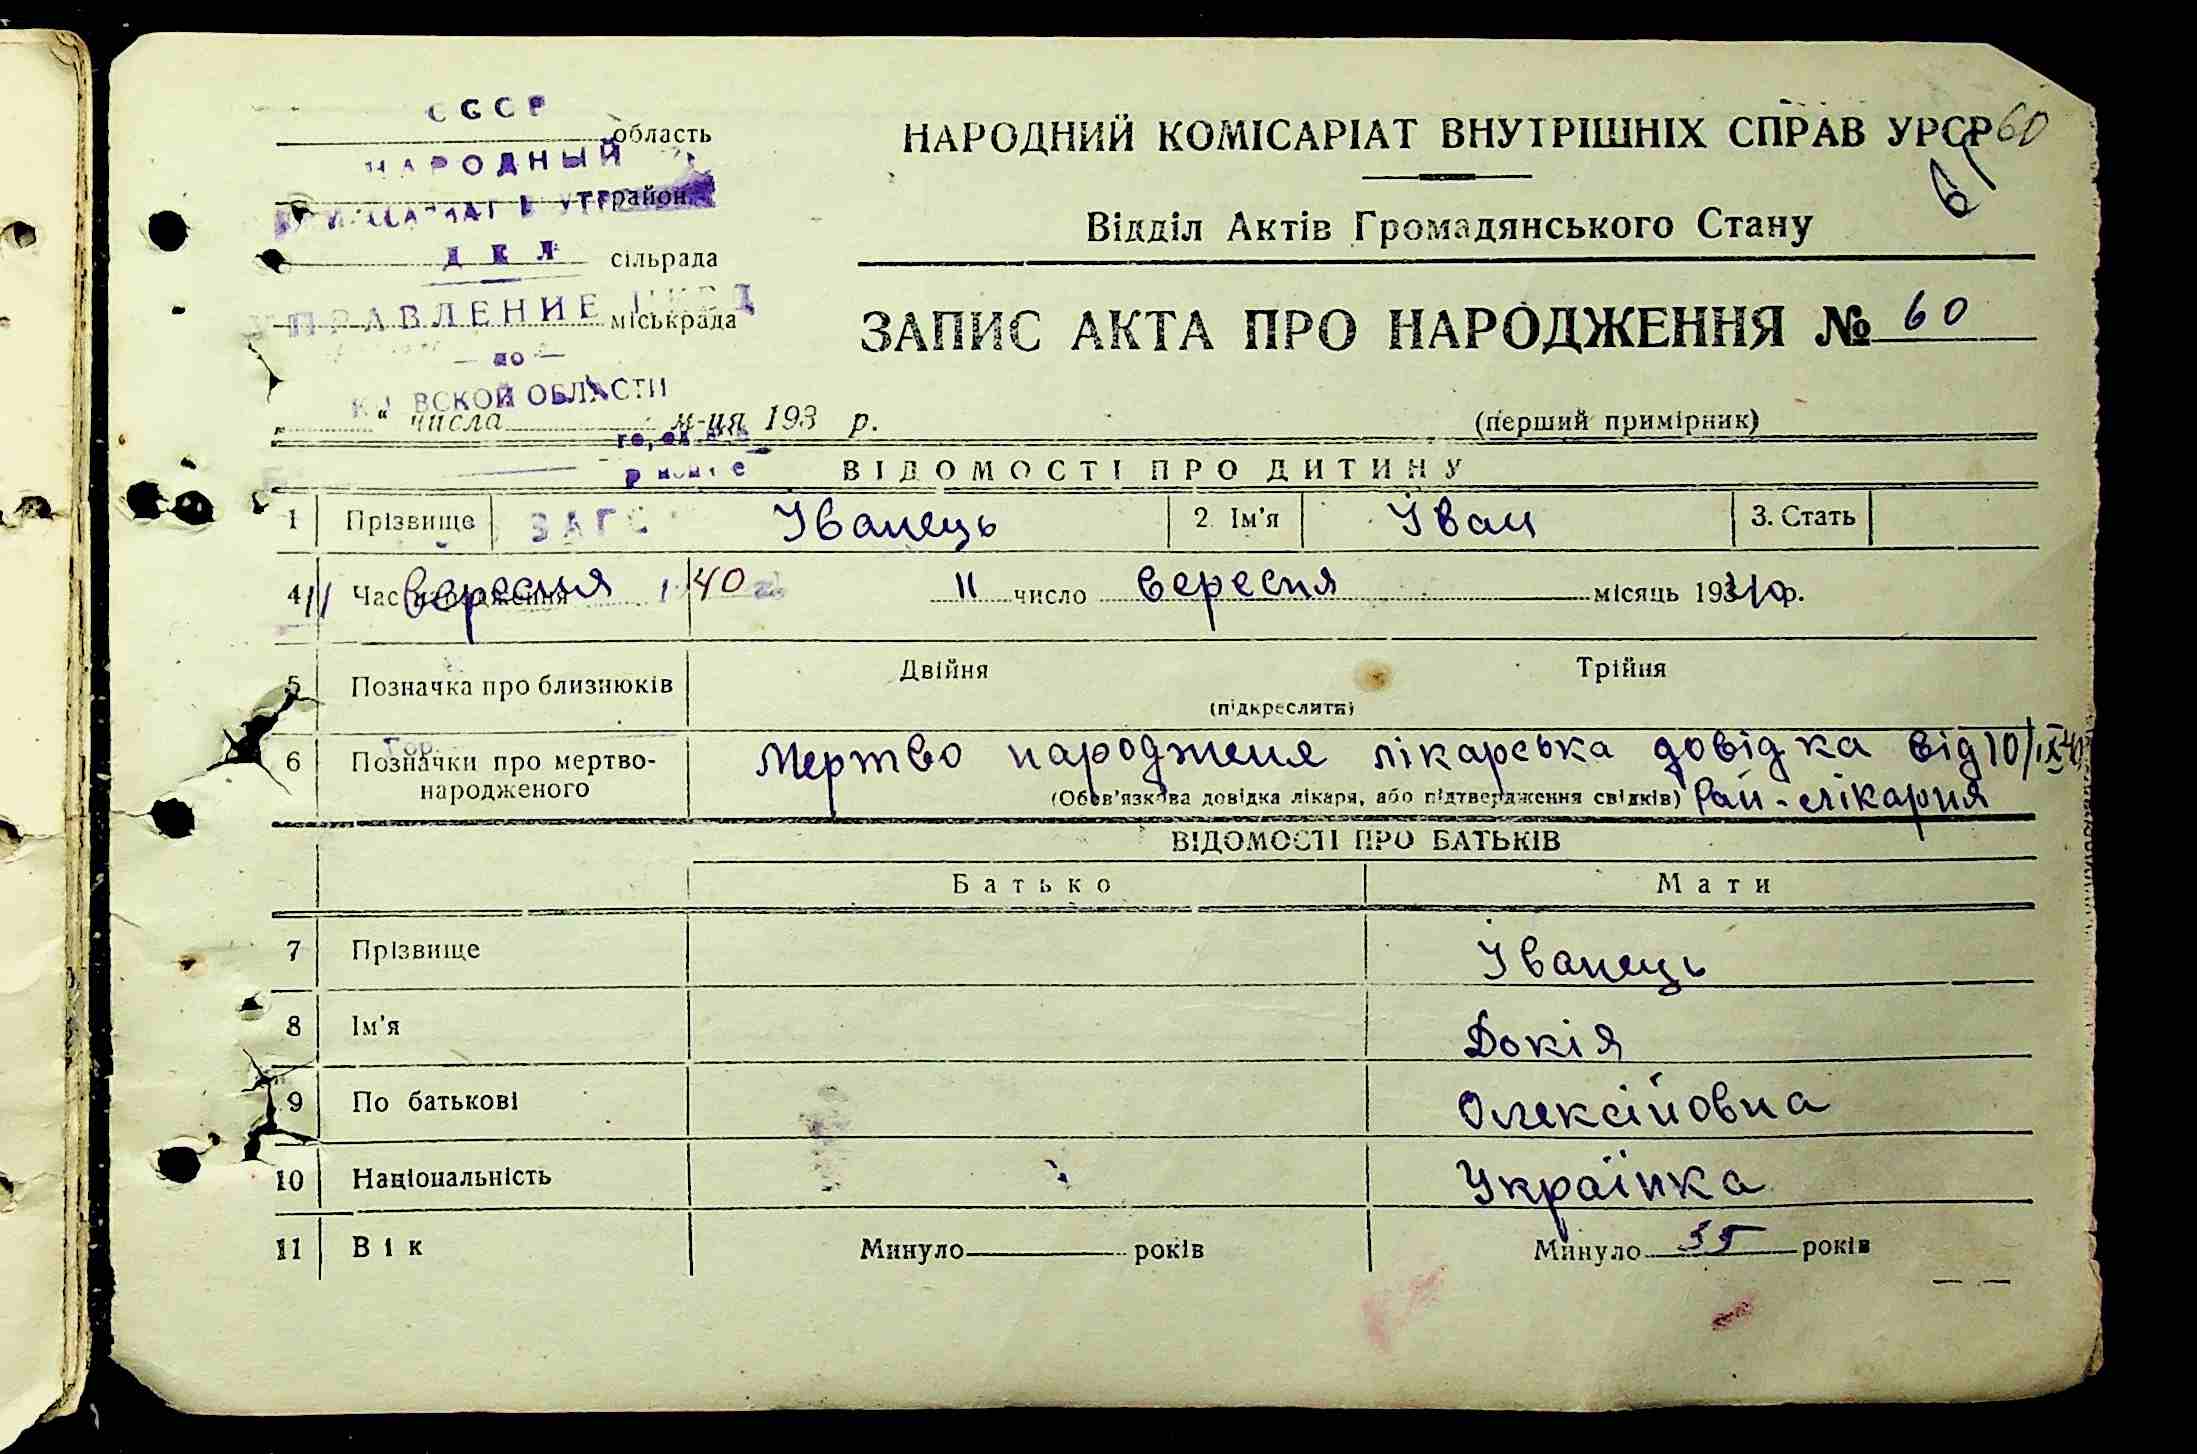 СССР
область
НАРОДНЫЙ
район
ДЕЛ
сільрада
УПРАВЛЕНИЕ НКВД
міськрада
— по —
КИЕВСКОЙ ОБЛАСТИ
„ “ числа м-ця 193 р.
НАРОДНИЙ КОМІСАРІАТ ВНУТРІШНІХ СПРАВ УРСР 60
61
Відділ Актів Громадянського Стану
ЗАПИС АКТА ПРО НАРОДЖЕННЯ № 60
(перший примірник)
ВІДОМОСТІ ПРО ДИТИНУ
1 Прізвище ЗАГС Іванець 2. Ім'я Іван 3. Стать
4 Час народження 11 вересня 1940 11 число вересня місяць 1940 р.
5 Позначка про близнюків Двійня Трійня
(підкреслити)
Гор.
6 Позначки про мертво-народженого Мертво народженя лікарська довідка від 10/IX 40
(Обов'язкова довідка лікаря, або підтвердження свідків) Рай-лікарня
ВІДОМОСТІ ПРО БАТЬКІВ
Батько Мати
7 Прізвище Іванець
8 Ім'я Докія
9 По батькові Олексійовна
10 Національність Українка
11 Вік Минуло років Минуло 35 років